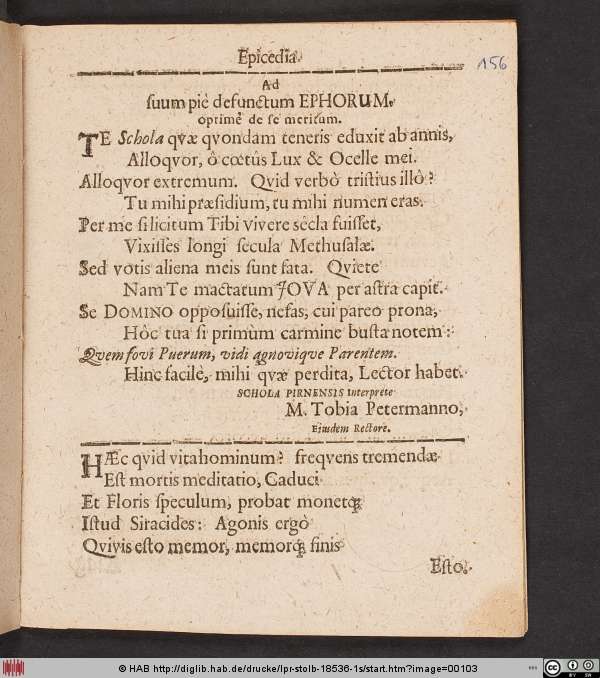 Epicedia.
156
Ad
suum piè defunctum EPHORUM.
optimè de se meritum.
TE Schola qvæ qvondam teneris eduxit ab annis,
Alloqvor, ô cœtûs Lux & Ocelle mei.
Alloqvor extremum. Qvid verbò tristius illô?
Tu mihi præsidium, tu mihi numen eras.
Per me si licitum Tibi vivere sêcla fuisset,
Vixissès longi secula Methusalæ.
Sed votis aliena meis sunt fata. Qviete
Nam Te mactatum JOVA per astra capit.
Se DOMINO opposuisse, nefas, cui pareo prona,
Hôc tua si primùm carmine busta notem:
Qvem fovi Puerum, vidi agnoviqve Parentem.
Hinc facilè, mihi qvæ perdita, Lector habet.
SCHOLA PIRNENSIS interprete
M. Tobia Petermanno,
Ejusdem Rectore.
HÆc qvid vita hominum? freqvens tremendæ
Est mortis meditatio, Caduci
Et Floris speculum, probat monetqꝫ
Istud Siracides: Agonis ergò
Qvivis esto memor, memorqꝫ finis
Esto.
© HAB http://diglib.hab.de/drucke/lpr-stolb-18536-1s/start.htm?image=00103
cc BY SA